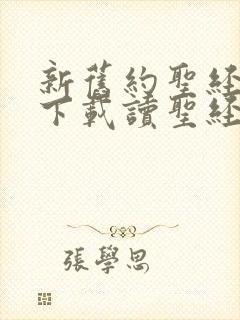 新舊約聖經
下載讀聖經
張學思